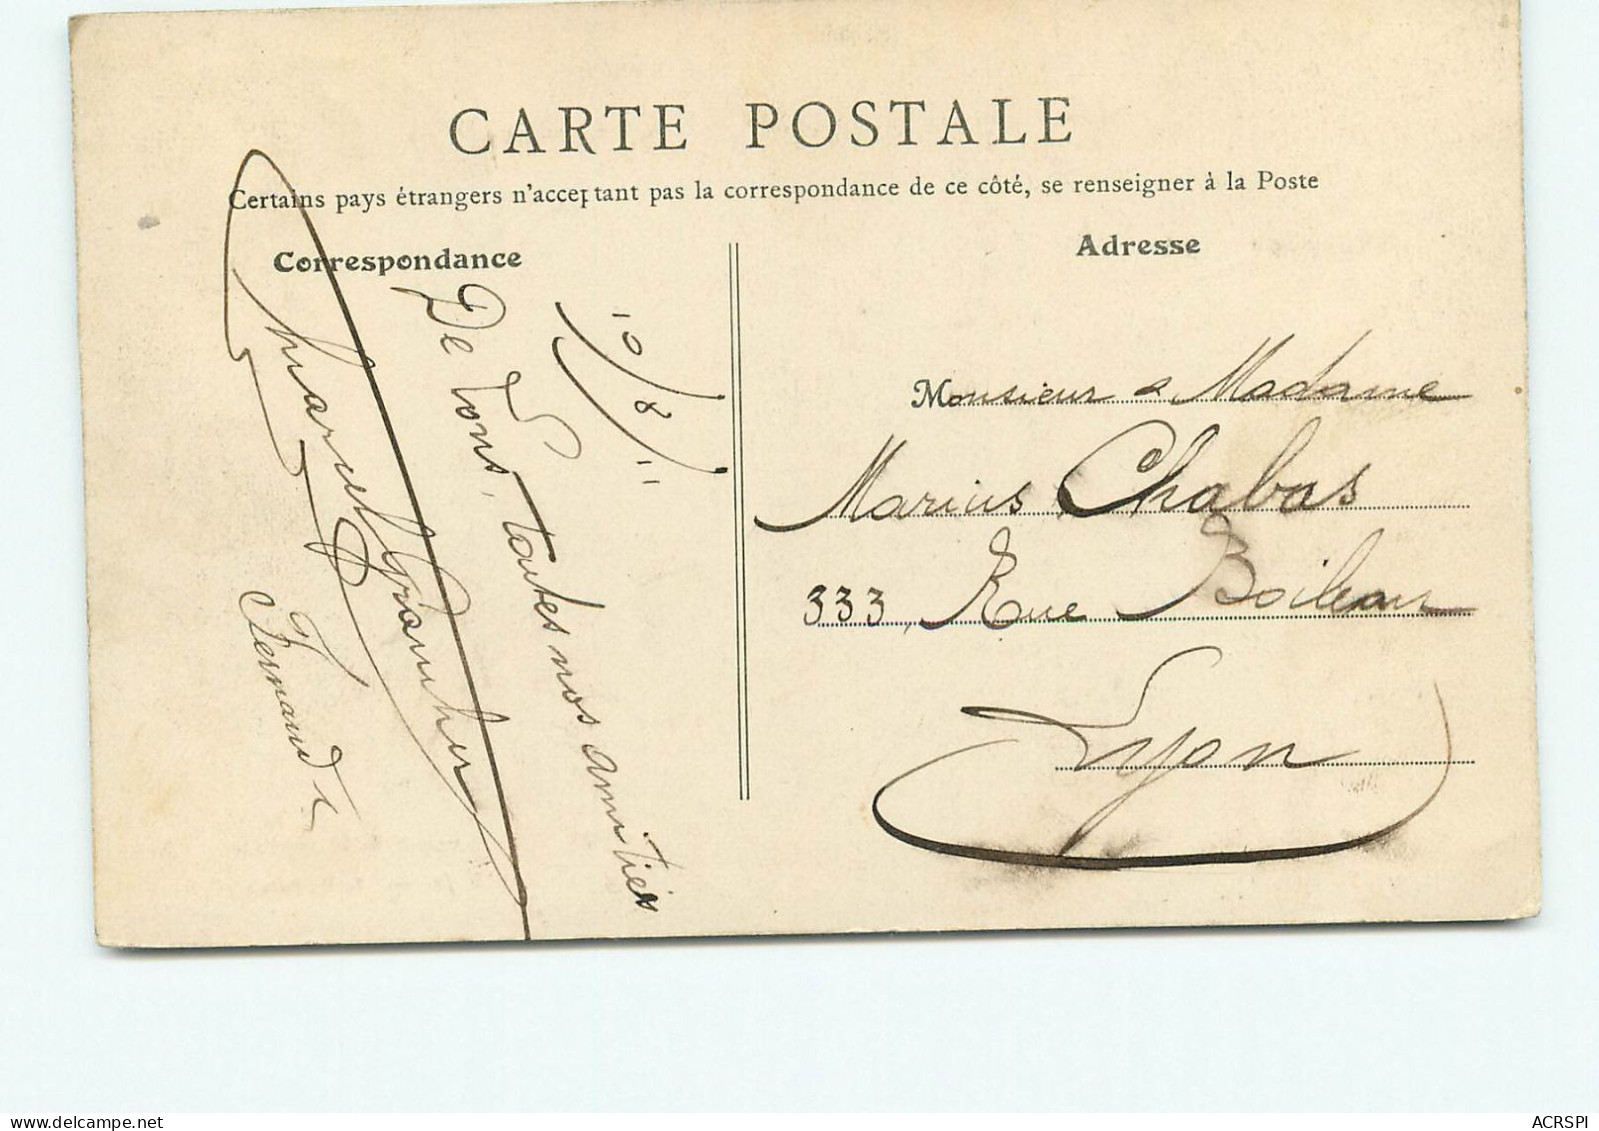 CARTE POSTALE
Certains pays étrangers n'acceptant pas la correspondance de ce côté, se renseigner à la Poste
Correspondance
10/8/11
De Tous, toutes nos amitiés
Marcel
Fernand
Adresse
Monsieur & Madame
Marius Chabas
333, Rue Boileau
Lyon
ACRSPI